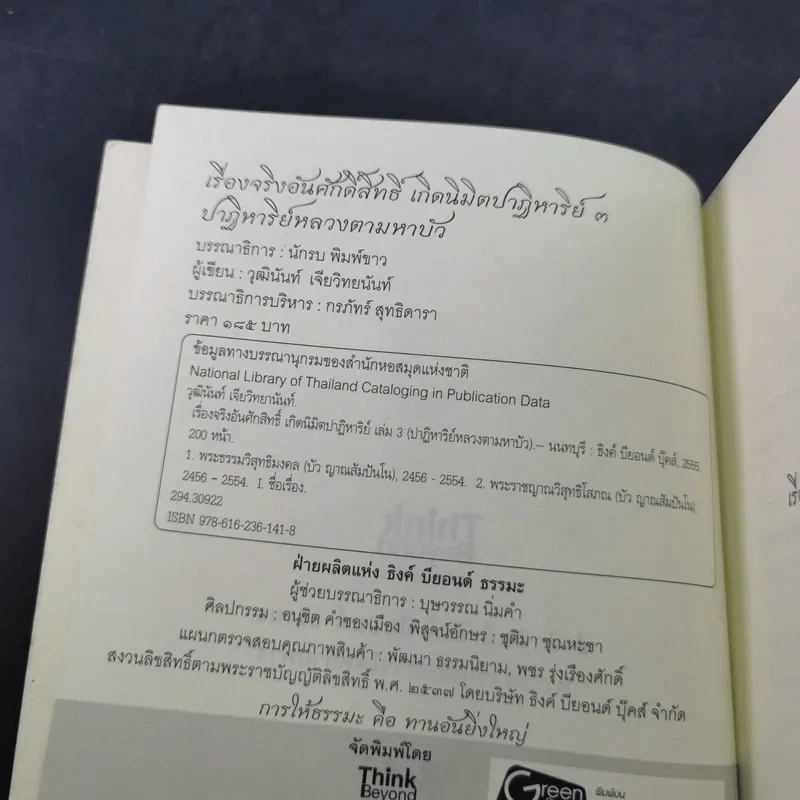 เรื่องจริงอันศักดิ์สิทธิ์ เกิดนิมิตปาฏิหาริย์ ๓
ปาฏิหาริย์หลวงตามหาบัว
บรรณาธิการ : นักรบ พิมพ์ขาว
ผู้เขียน : วุฒินันท์ เจียวิทยนันท์
บรรณาธิการบริหาร : กรภัทร์ สุทธิดารา
ราคา ๑๘๕ บาท
ข้อมูลทางบรรณานุกรมของสำนักหอสมุดแห่งชาติ
National Library of Thailand Cataloging in Publication Data
วุฒินันท์ เจียวิทยานันท์.
เรื่องจริงอันศักสิทธิ์ เกิดนิมิตปาฏิหาริย์ เล่ม 3 (ปาฏิหาริย์หลวงตามหาบัว).-- นนทบุรี : ธิงค์ บียอนด์ บุ๊คส์, 2555.
200 หน้า.
1. พระธรรมวิสุทธิมงคล (บัว ญาณสัมปันโน), 2456 - 2554. 2. พระราชญาณวิสุทธิโสภณ (บัว ญาณสัมปันโน),
2456 - 2554. I. ชื่อเรื่อง.
294.30922
ISBN 978-616-236-141-8
ฝ่ายผลิตแห่ง ธิงค์ บียอนด์ ธรรมะ
ผู้ช่วยบรรณาธิการ : บุษวรรณ นิ่มคำ
ศิลปกรรม : อนุชิต คำซองเมือง พิสูจน์อักษร : ชุติมา ชุณหะชา
แผนกตรวจสอบคุณภาพสินค้า : พัฒนา ธรรมนิยาม, พชร รุ่งเรืองศักดิ์
สงวนลิขสิทธิ์ตามพระราชบัญญัติลิขสิทธิ์ พ.ศ. ๒๕๓๗ โดยบริษัท ธิงค์ บียอนด์ บุ๊คส์ จำกัด
การให้ธรรมะ คือ ทานอันยิ่งใหญ่
จัดพิมพ์โดย
Think
Beyond
Green
พิมพ์บน